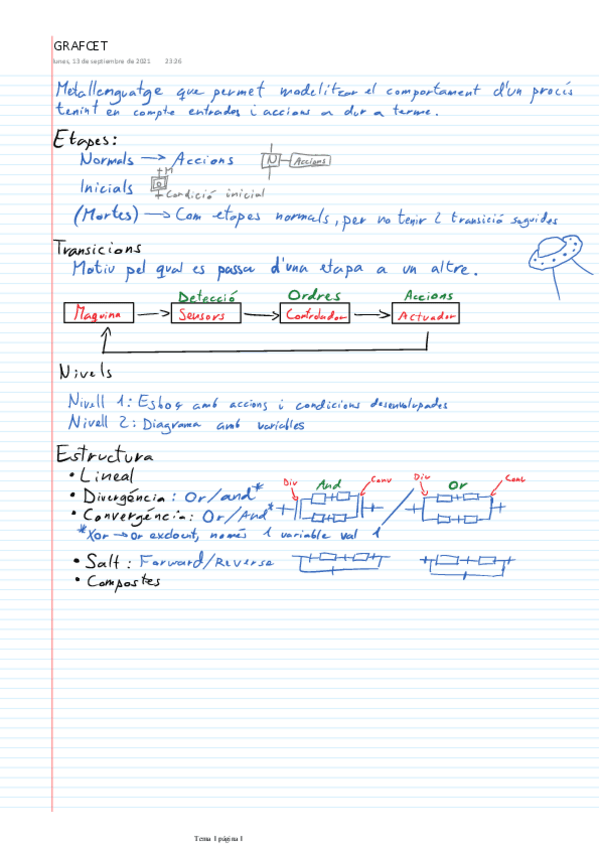 GRAFCET
lunes, 13 de septiembre de 2021 23:26
Metallenguatge que permet modelitzar el comportament d'un procés
tenint en compte entrades i accions a dur a terme.
Etapes:
Normals → Accions N Accions
Inicials +M 0
+Condició inicial
(Mortes) → Com etapes normals, per no tenir 2 transició seguides
Transicions
Motiu pel qual es passa d'una etapa a un altre.
Detecció Ordres Accions
Maquina → Sensors → Controlador → Actuador
Nivells
Nivell 1: Esboç amb accions i condicions desenvolupades
Nivell 2: Diagrama amb variables
Estructura
• Lineal
• Divergéncia: Or/and* Div And Conv Div Or Conv
• Convergéncia: Or/And*
*Xor → or exclout, només 1 variable val 1
• Salt: Forward/Reverse
• Compostes
Tema 1 página 1